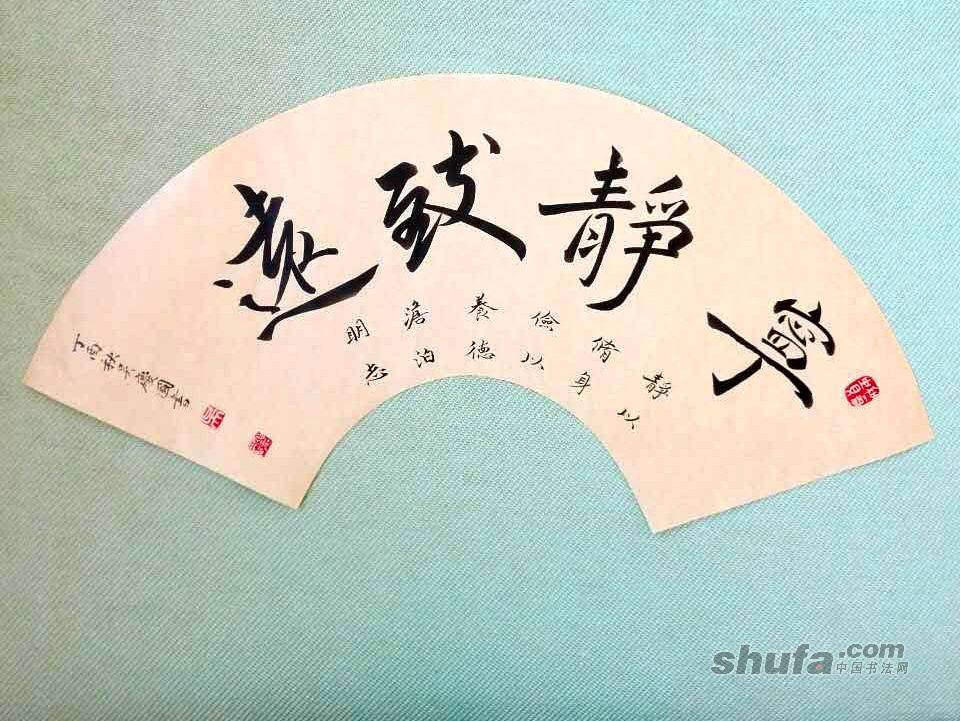 寧靜致遠
靜以
脩身
儉以
養德
澹泊
明志
丁酉秋吴慶國書
shufa.com
中国书法网